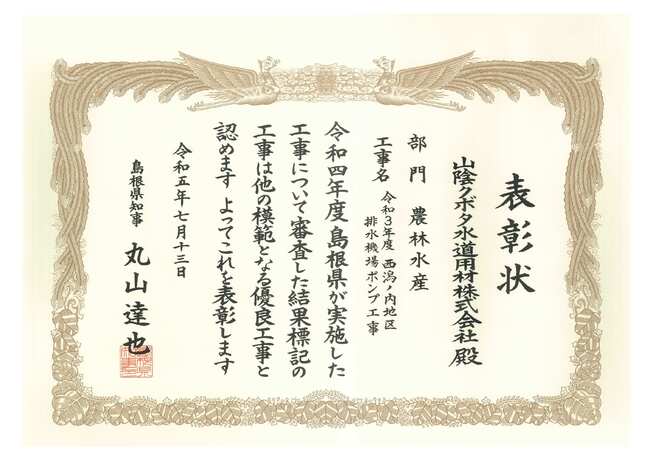 表彰状
山陰クボタ水道用材株式会社 殿
部門 農林水産
工事名 令和3年度 西潟ノ内地区
排水機場ポンプ工事
令和四年度島根県が実施した
工事について審査した結果標記の
工事は他の模範となる優良工事と
認めます よってこれを表彰します
令和五年七月十三日
島根県知事 丸山達也